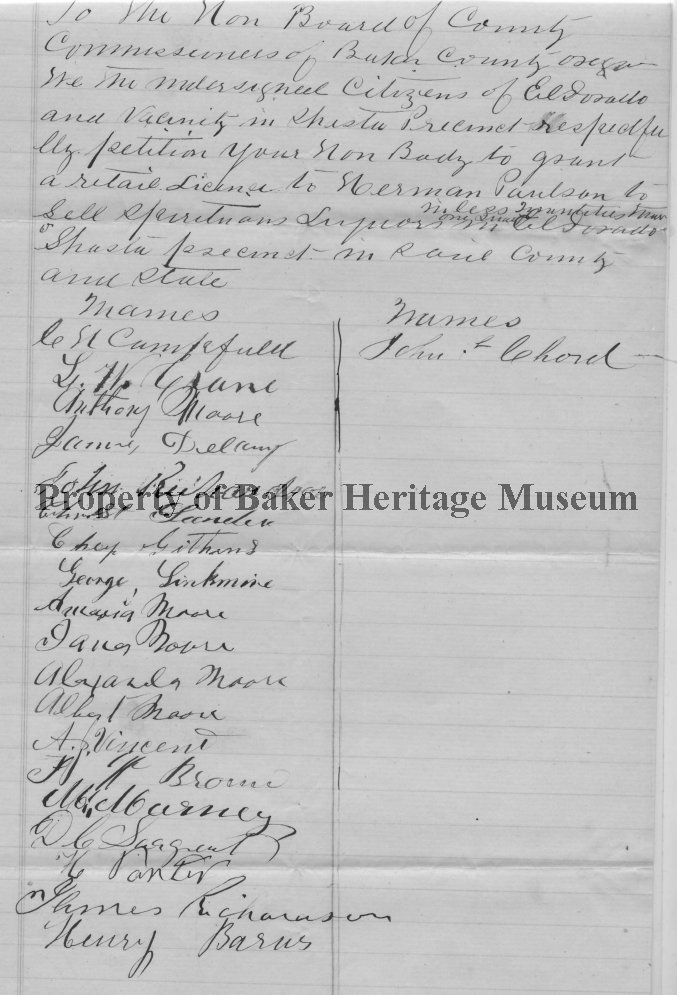 To the Hon Board of County
Commissioners of Baker County Oregon
We the undersigned Citizens of ElDorado
and Vicinity in Shasta Precinct respectfu
lly petition your Hon Body to grant
a retail License to Herman Paulson to
in less quantities than
one quart
Sell Spirituous Liquors in ElDorado
Shasta precinct in said County
and State
Names
Names
C H Campfield
John Chord
L. W. Crane
Anthony Moore
James Delany
John
Property of Baker Heritage Museum
Christ Sander
Chap Githens
George Linkmire
Amaria Moore
James Moore
Alexander Moore
Albert Moore
A. J. Vincent
W Brown
Murney
D C Sargent
Porter
James Richardson
Henry Barus